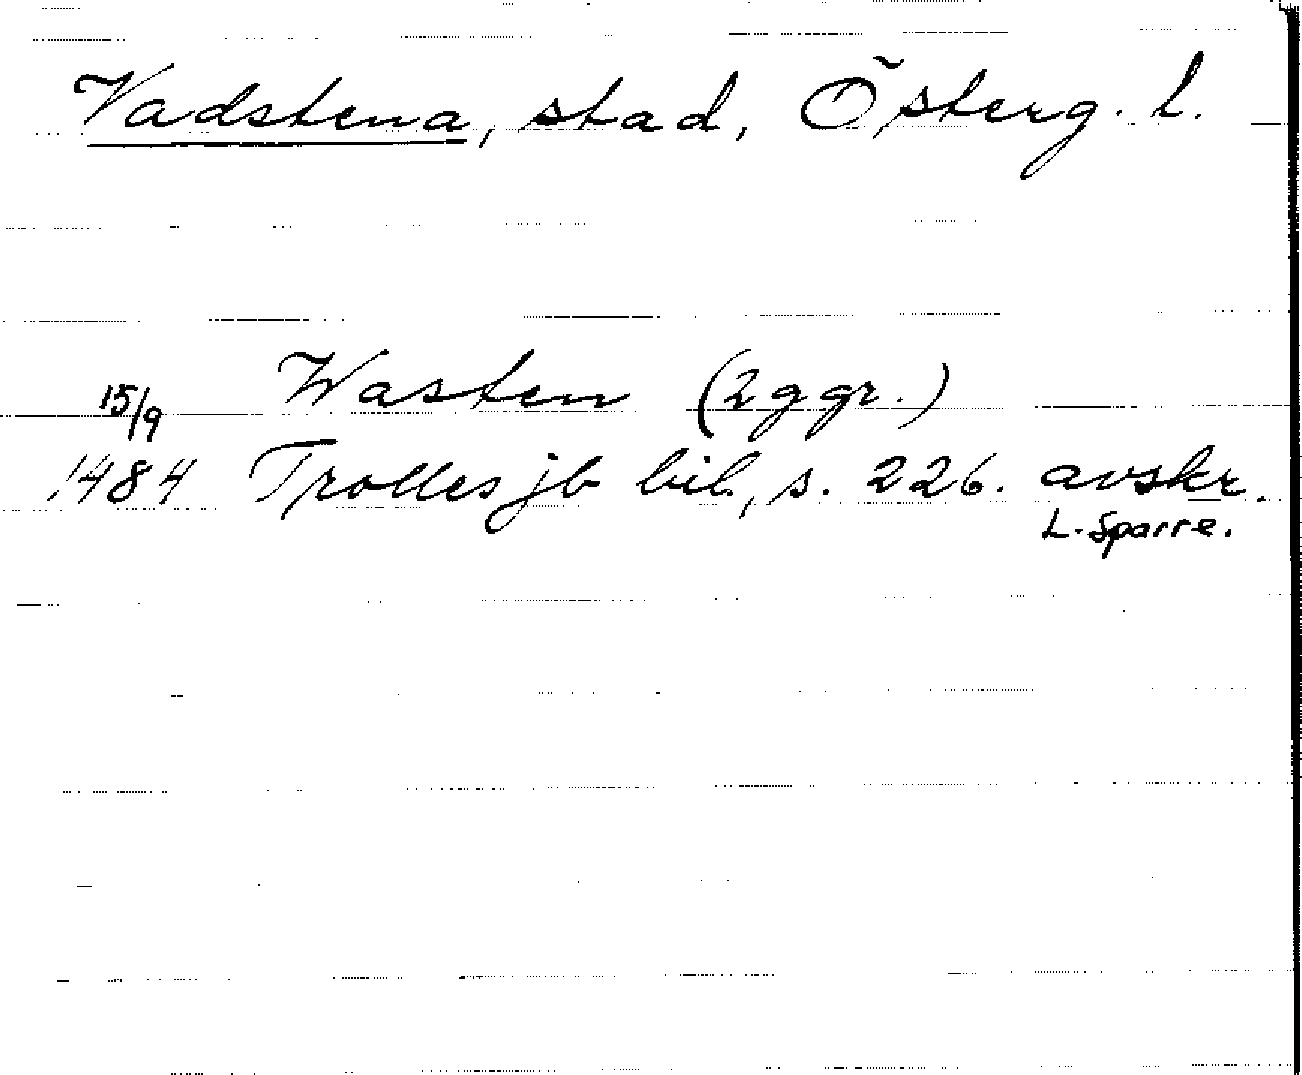 Vadstena, stad, Österg. l.
Wasten (2 ggr.)
15/9
1484 Trolles jb bil., s. 226. avskr.
L. Sparre.